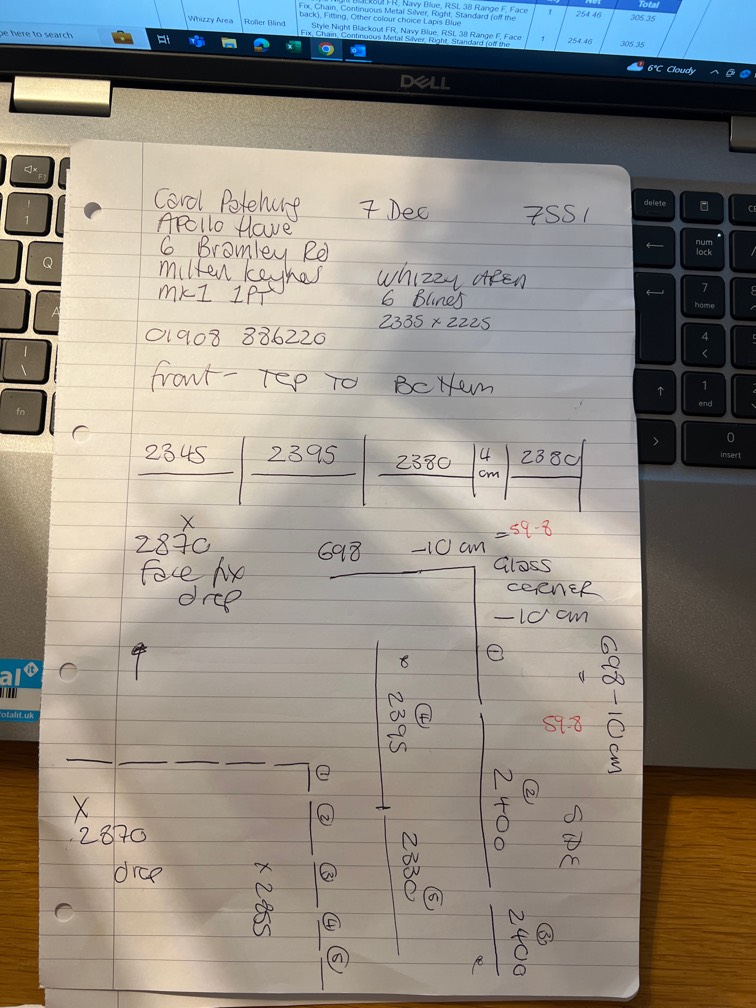 Fix, Chain, Continuous Metal Silver, Right, Standard (off the
back), Fitting, Other colour choice Lapis Blue
1 254.46 305.35
Total
Whizzy Area Roller Blind
Style Night Blackout FR, Navy Blue, RSL 38 Range F, Face
Fix, Chain, Continuous Metal Silver, Right, Standard (off the
1 254.46 305.35
pe here to search
6°C Cloudy
DELL
delete
num
lock
7
home
4
1
end
0
insert
Q
A
fn
1
7 Dec
7SS1
Apollo
6 Bramley Rd
Milten Keynes
MK1 1PT
01908 886220
Whizzy AREA
6 Blinds
2335 x 2225
front - TOP TO BOTTOM
2345
2395
2380
4
cm
2380
X
2870
face fix
drop
698 -10 cm = 59-8
Glass
CORNER
-10 cm
=
698-10cm
59.8
①
x 2395 ④
2400 ②
SIDE
2330 ⑤
2400 ③
X
2870
drop
x 2855
①
②
③
④
⑤
al it
totalit.uk